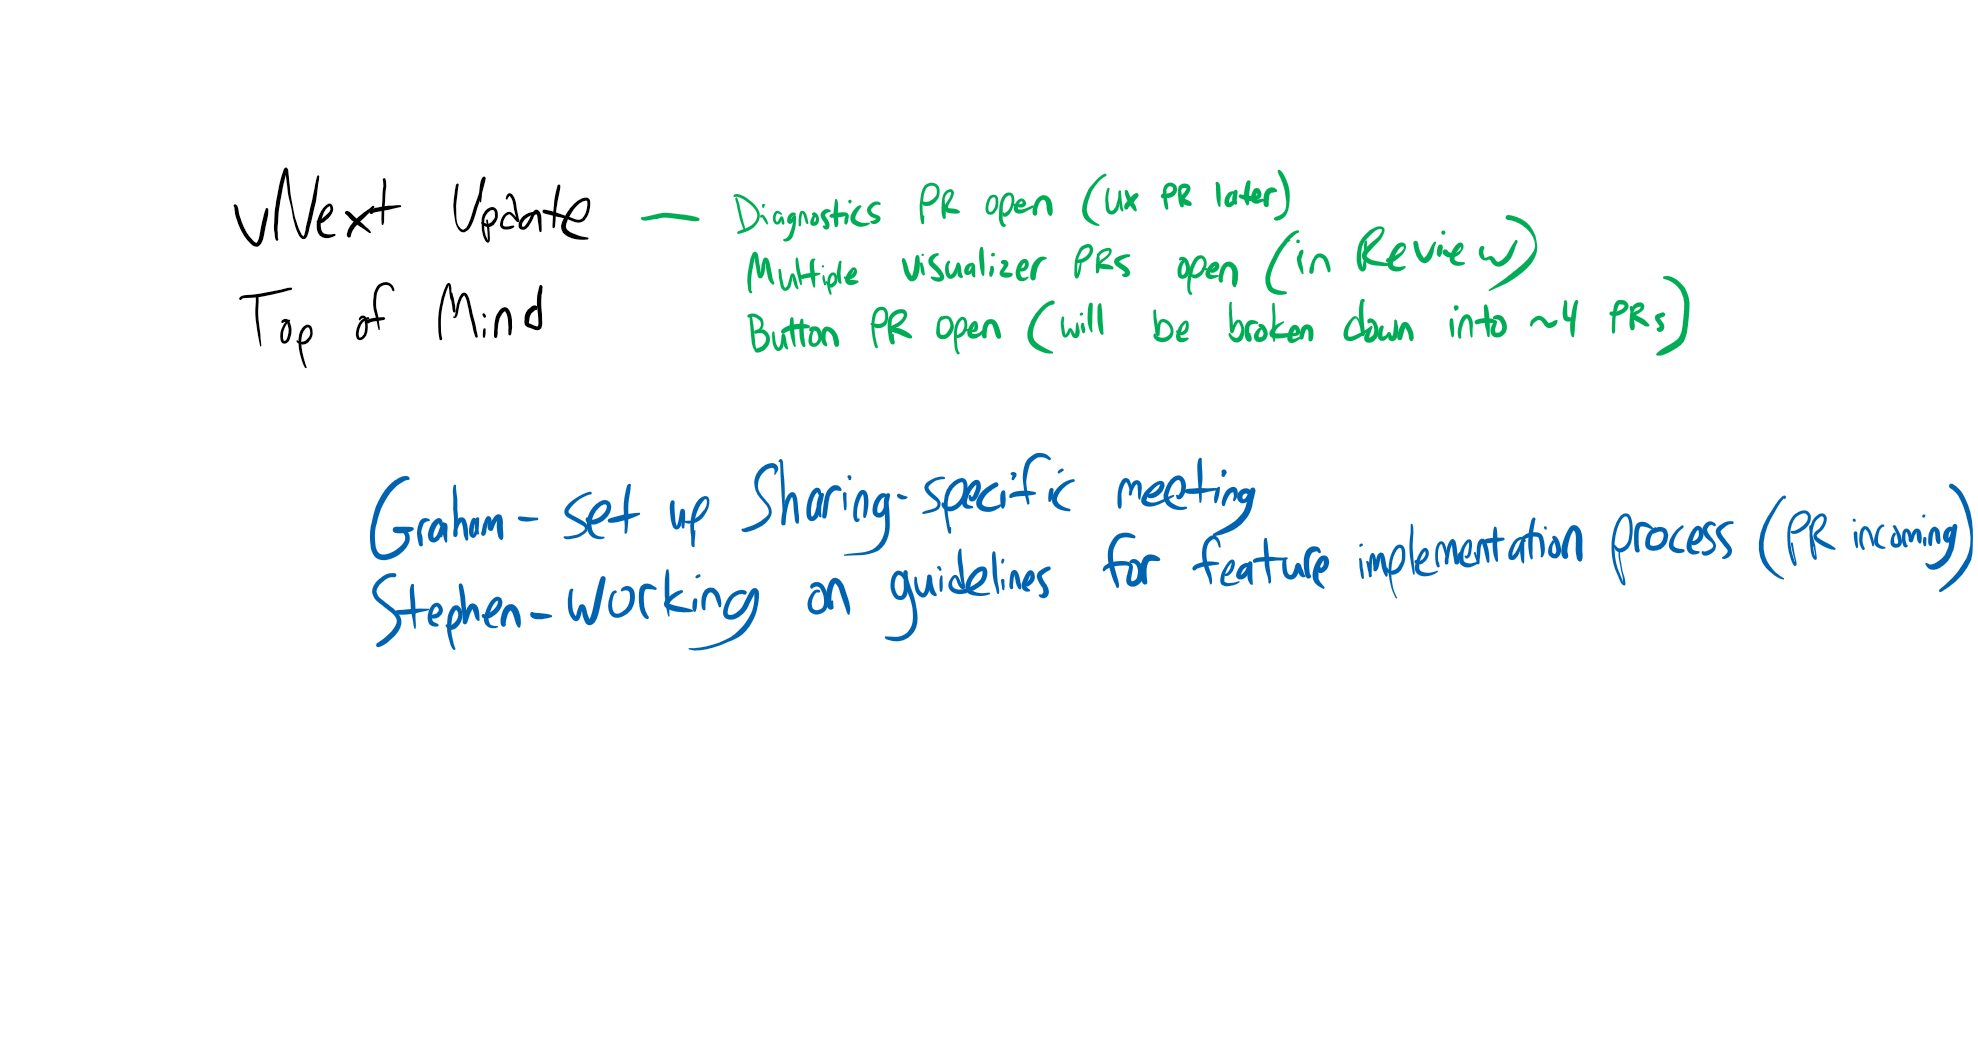 vNext Update — Diagnostics PR open (ux PR later)
Multiple visualizer PRs open (in Review)
Top of Mind
Button PR open (will be broken down into ~4 PRs)
Graham - set up Sharing-specific meeting
Stephen - working on guidelines for feature implementation process (PR incoming)